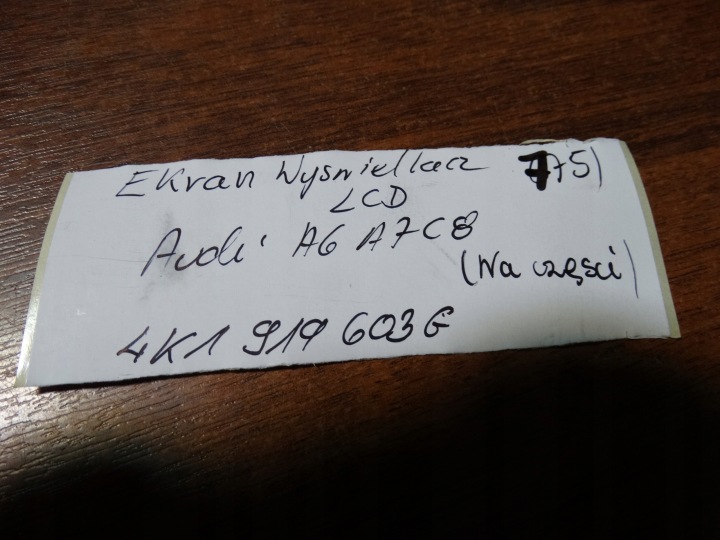 Ekran Wyświetlacz 775)
LCD
Audi A6 A7 C8
(Na części)
4K1 919 603 G